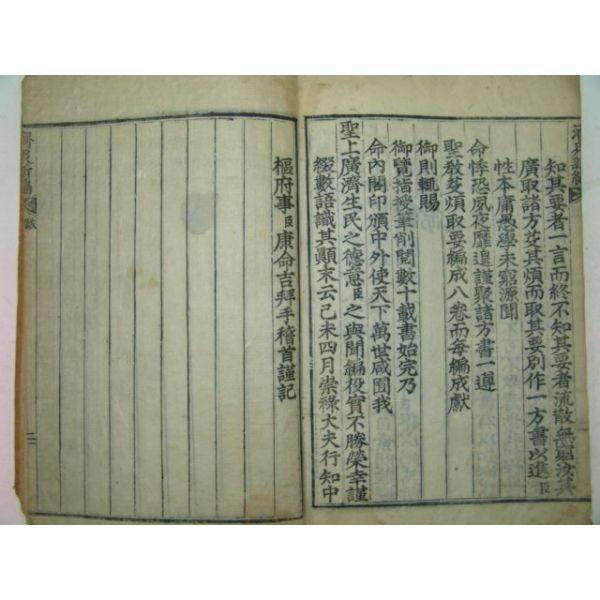 知其要者一言而終不知其要者流散無窮汝其
廣取諸方芟其煩而取其要別作一方書以進臣
性本庸愚學未窮源聞
命悸恐夙夜靡遑謹聚諸方書一遵
聖敎芟煩取要編成八卷而每編成獻
御則輒賜
御覽指授筆削閱數十載書始完乃
命內閣印頒中外使天下萬世咸囿我
聖上廣濟生民之德意臣之與聞編役實不勝榮幸謹
綴數語識其顚末云己未四月崇祿大夫行知中
樞府事臣康命吉拜手稽首謹記
濟衆新編
跋
二